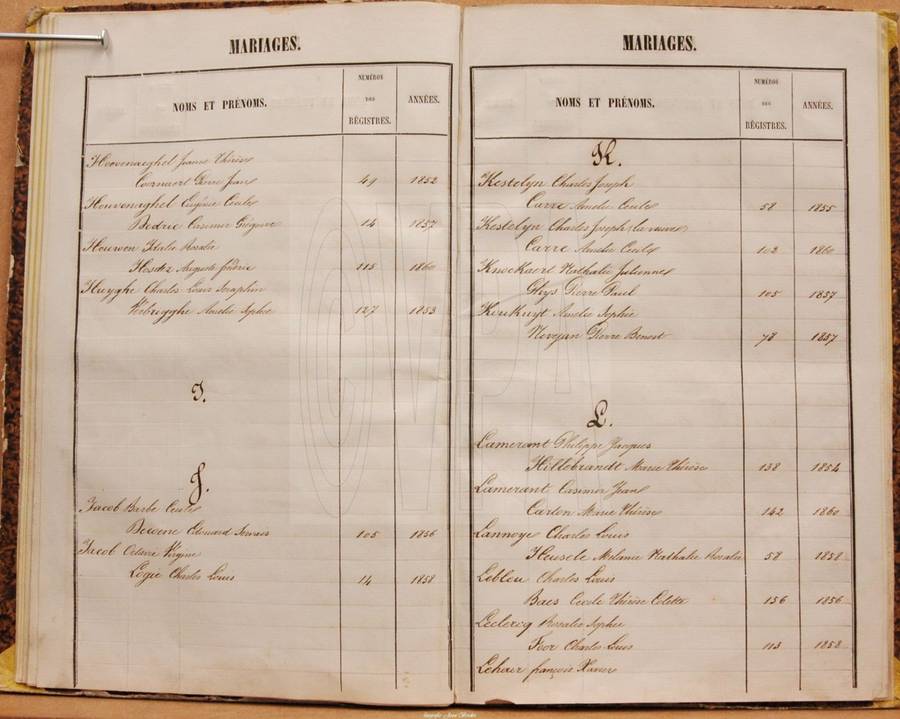 MARIAGES.
NOMS ET PRÉNOMS. NUMÉROS DES RÉGISTRES. ANNÉES.
Hoovenaeghel Jeanne Thérèse
Cornaert Pierre Jean 49 1852
Houvenaeghel Eugénie Cecile
Bedrie Casimir Grégoire 14 1857
Hourson Italie Rosalie
Hosdez Auguste 115 1860
Huyghe Charles Louis Seraphin
Verbrigghe Amelie Sophie 127 1853
I.
J.
Jacob Barbe Cecile
Decoene Edouard Servais 105 1856
Jacob Octavie Virginie
Logie Charles Louis 14 1858
MARIAGES.
NOMS ET PRÉNOMS. NUMÉROS DES RÉGISTRES. ANNÉES.
K.
Kestelyn Charles Joseph
Carre Amelie Cecile 58 1855
Kestelyn Charles Joseph (la veuve)
Carre Amelie Cecile 102 1860
Knockaert Nathalie Julienne
Ghys Pierre Paul 105 1857
Koukuyt Amelie Sophie
Nevejan Pierre Benoit 78 1857
L.
Lamerant Philippe Jacques
Hillebrandt Marie Thérèse 138 1854
Lamerant Casimir Jean
Carlon Marie Thérèse 142 1860
Lannoye Charles Louis
Heusele Melanie Nathalie Rosalie 58 1858
Lebleu Charles Louis
Baes Cecile Thérèse Colette 156 1856
Leclercq Rosalie Sophie
Charles Louis 113 1858
Lehour François Xavier
CVPA